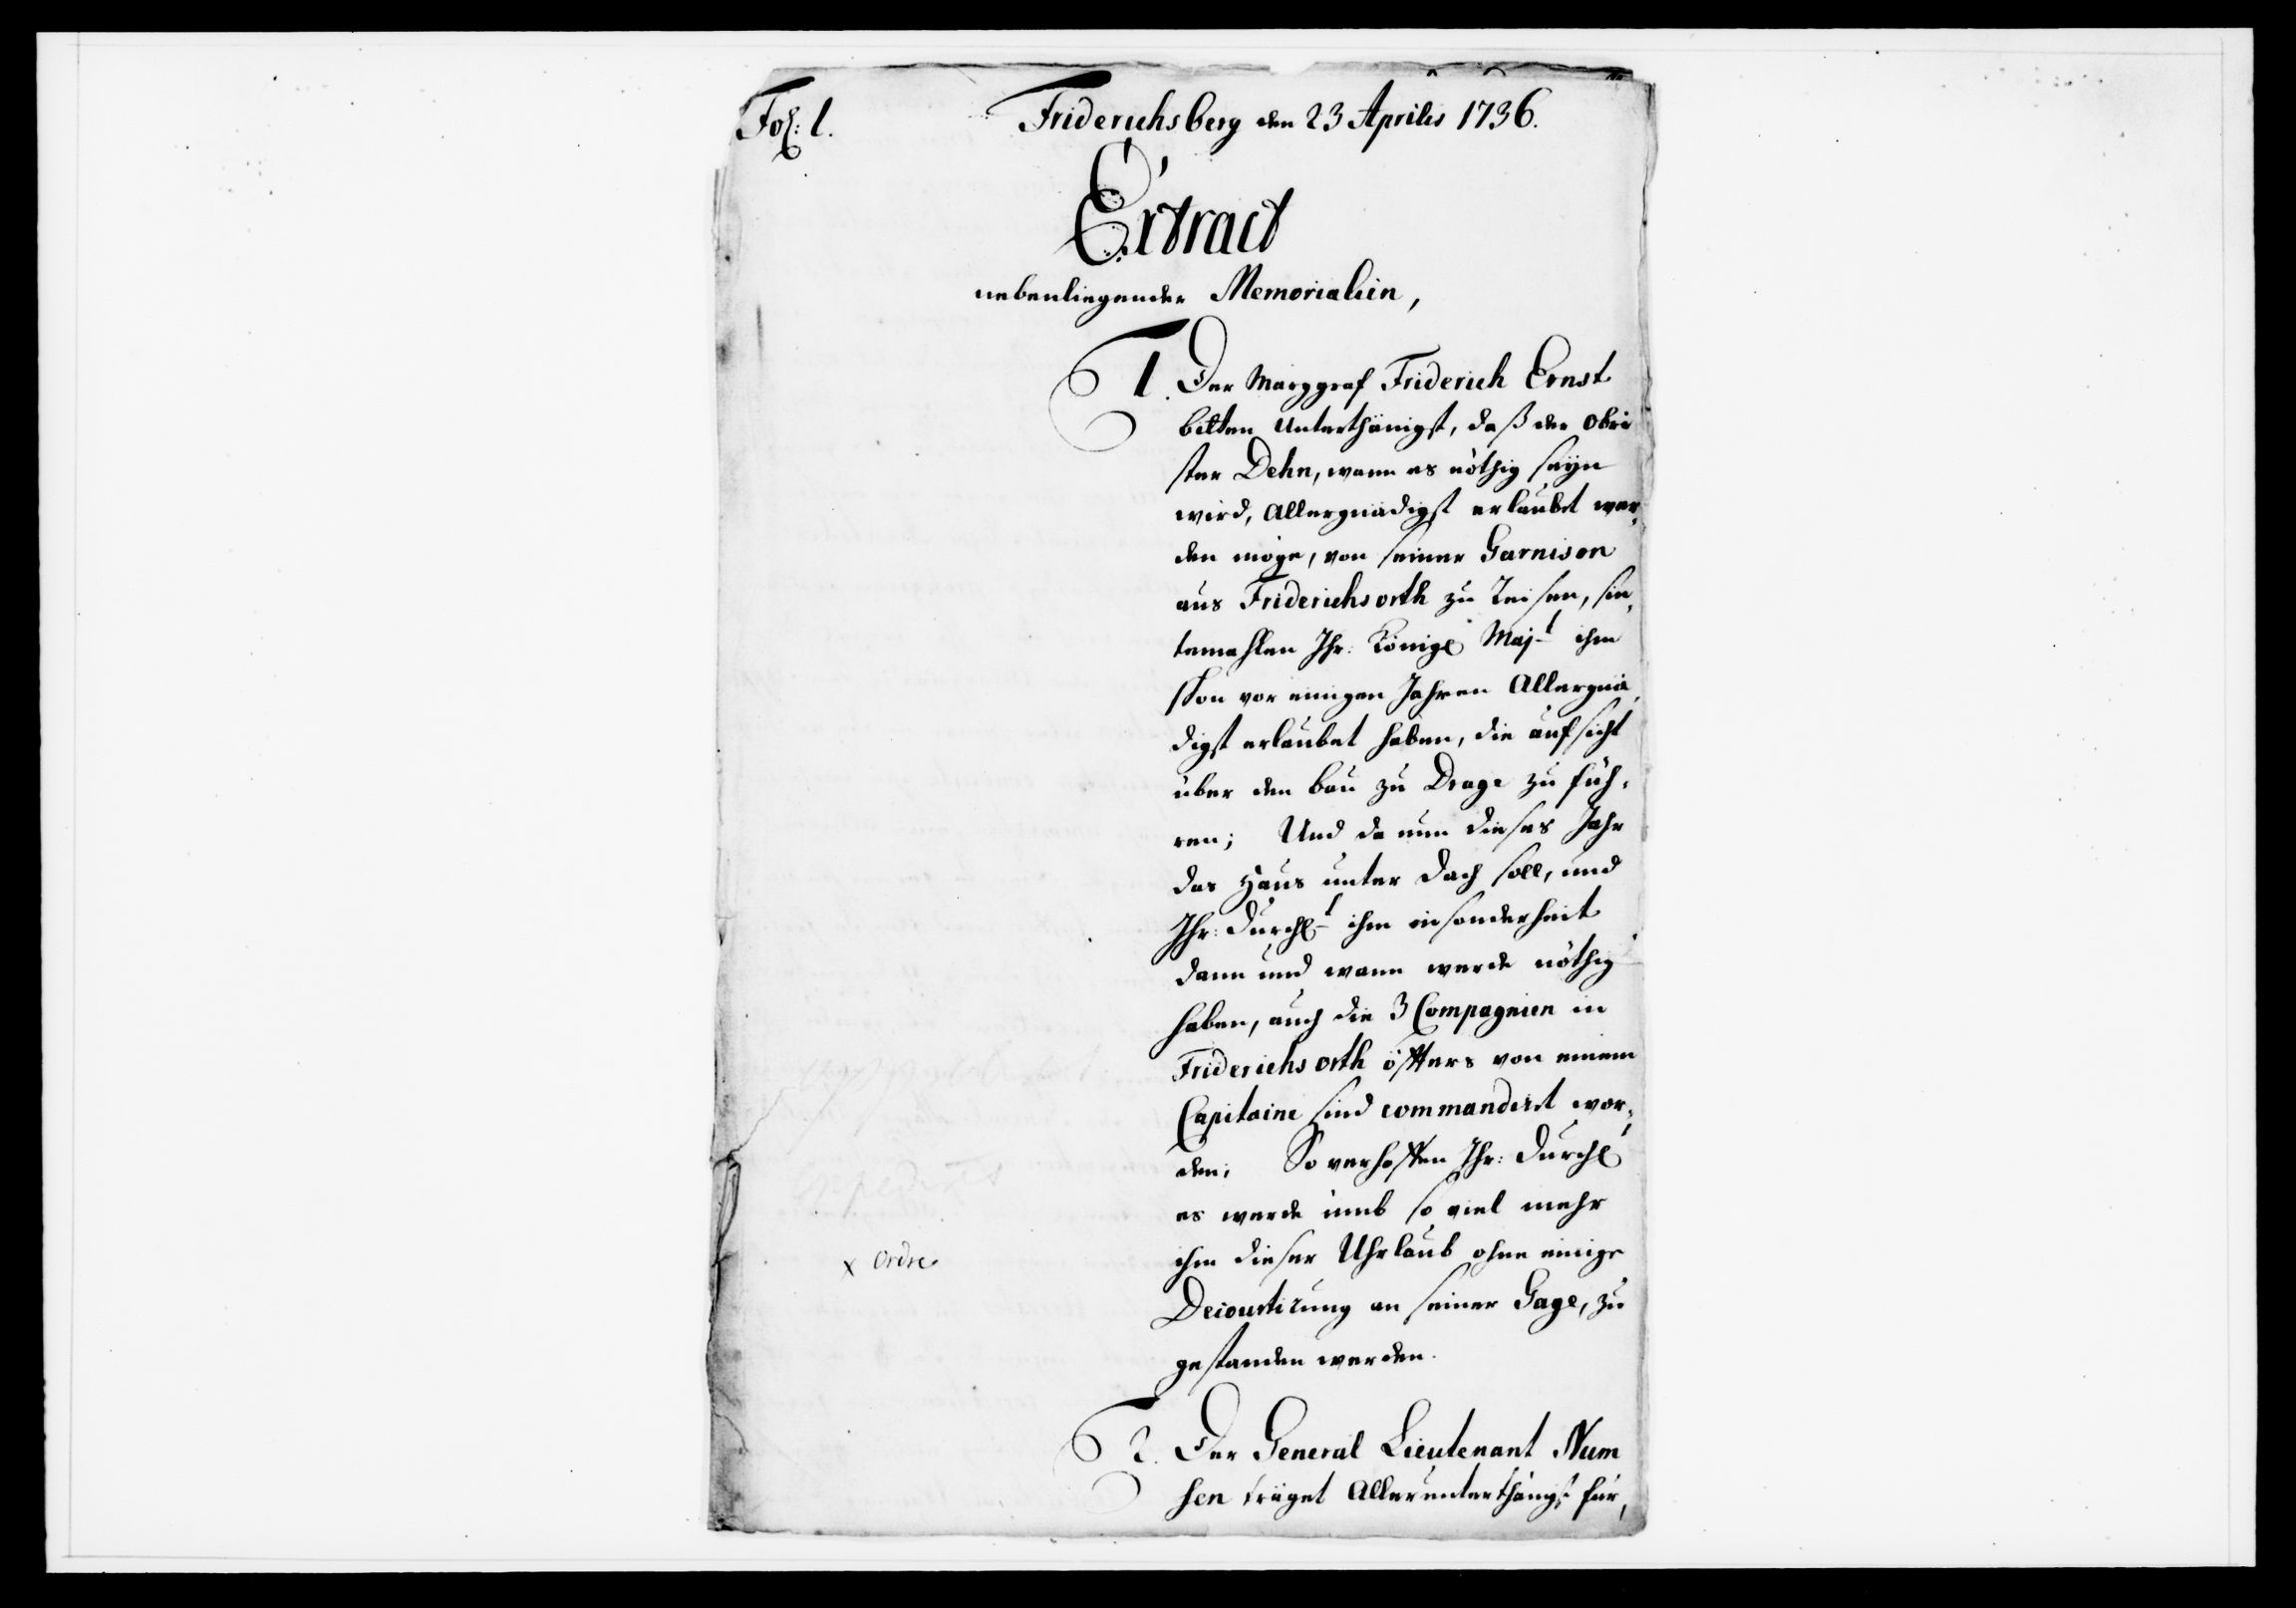 Fol: 1.
Friderichsberg den 23 Aprilis 1736.
Extract
nebenliegender Memorialien,
1. Der Marggraf Friderich Ernst
bitten Unterthänigst, daß der Obri
ster Dehn, wann es nöthig seyn
wird, Allergnädigst erlaubet wer,
den möge, von seiner Garnison
aus Friderichsorth zu Reisen, sin,
temahlen Ihr: Königl Majt ihm
schon vor einigen Jahren Allergnä,
digst erlaubet haben, die aufsicht
über den bau zu Drage zu füh,
ren; Und da nun dieses Jahr
das Haus unter Dach soll, und
Ihr: Durchlt ihm insonderheit
dann und wann werde nöthig
haben, auch die 3 Compagnien in
Friderichsorth öffters von einem
Capitaine sind commandirt wor,
den; So verhoffen Ihr: Durchl
es werde umb so viel mehr
ihm dieser Uhrlaub ohne einige
Decourtirung an seiner Gage, zu
gestanden werden.
x Ordre
2. Der General Lieutenant Num
sen träget Allerunterthänigst für,